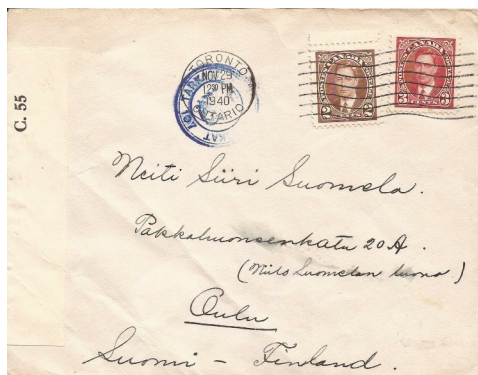 C. 55
TORONTO
NOV 29
12 30 PM
1940
ONTARIO
CANADA
2 2
CANADA
3 3
Neiti Siiri Suomela.
Pakkahuoneenkatu 20 A.
(Niilo Luomelan luona)
Oulu
Suomi - Finland.